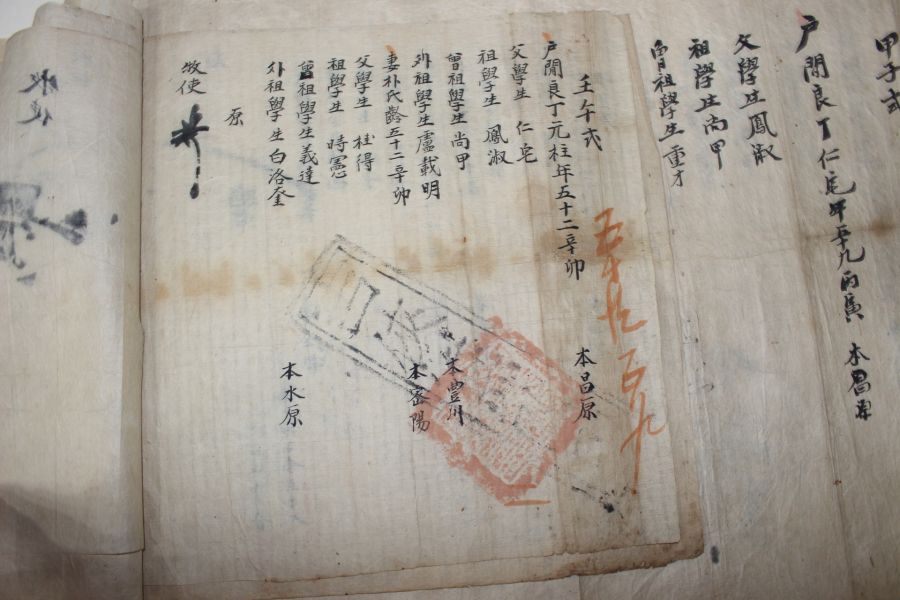 甲子式
戶閑良丁仁宅年五十九丙寅 本昌原
父學生鳳淑
祖學生尚甲
曾祖學生重才
壬午式
戶閑良丁元柱年五十二辛卯 本昌原
父學生 仁宅
祖學生 鳳淑
曾祖學生尚甲
外祖學生盧載明 本豐川
妻朴氏齡五十二辛卯 本密陽
父學生 桂得
祖學生 時憲
曾祖學生義達
外祖學生白洛奎 本水原
原